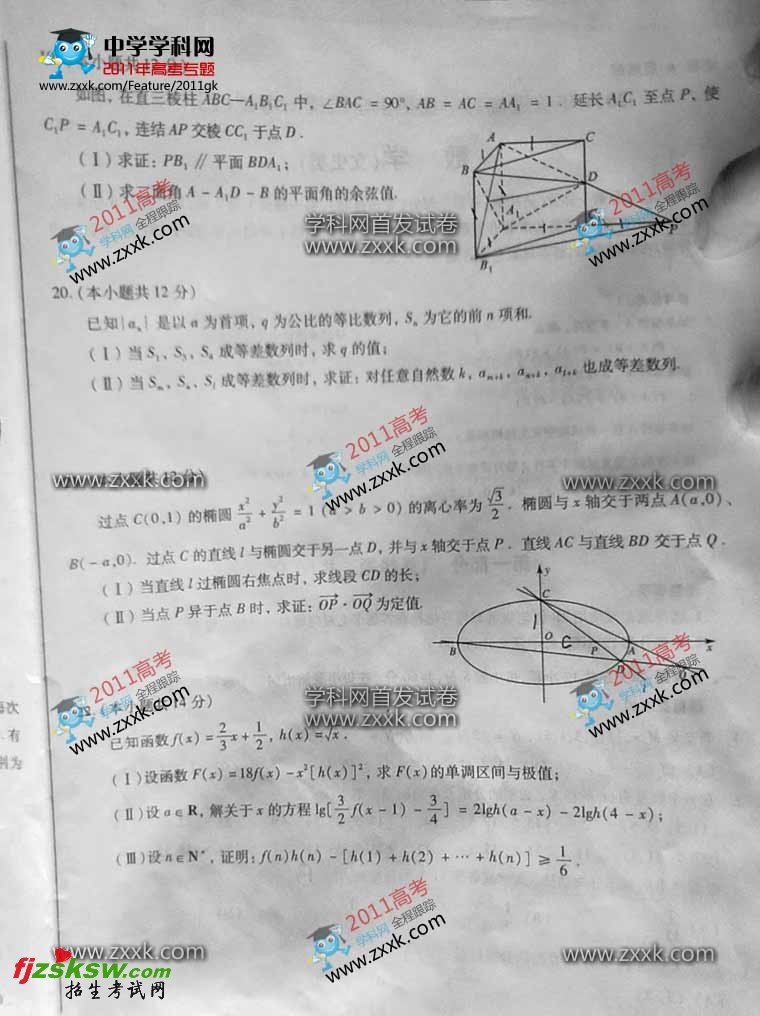 中学学科网
2011年高考专题
www.zxxk.com/Feature/2011gk
如图,在直三棱柱 ABC—A₁B₁C₁ 中,∠BAC = 90°, AB = AC = AA₁ = 1. 延长 A₁C₁ 至点 P, 使
C₁P = A₁C₁, 连结 AP 交棱 CC₁ 于点 D.
(Ⅰ)求证: PB₁ // 平面 BDA₁;
(Ⅱ)求二面角 A - A₁D - B 的平面角的余弦值.
A
C
B
D
A₁
P
B₁
1
2011高考
学科网 全程跟踪
www.zxxk.com
学科网首发试卷
www.zxxk.com
2011高考
学科网 全程跟踪
www.zxxk.com
20. (本小题共 12 分)
已知{aₙ}是以 a 为首项, q 为公比的等比数列, Sₙ 为它的前 n 项和.
(Ⅰ)当 S₁、S₃、S₄ 成等差数列时, 求 q 的值;
(Ⅱ)当 Sₘ、Sₙ、Sₗ 成等差数列时, 求证: 对任意自然数 k, aₘ₊ₖ、aₙ₊ₖ、aₗ₊ₖ 也成等差数列.
www.zxxk.com
2011高考
学科网 全程跟踪
www.zxxk.com
www.zxxk.com
12 分)
过点 C(0,1) 的椭圆 x²/a² + y²/b² = 1 (a > b > 0) 的离心率为 √3/2. 椭圆与 x 轴交于两点 A(a,0)、
B(-a,0). 过点 C 的直线 l 与椭圆交于另一点 D, 并与 x 轴交于点 P. 直线 AC 与直线 BD 交于点 Q.
(Ⅰ)当直线 l 过椭圆右焦点时, 求线段 CD 的长;
(Ⅱ)当点 P 异于点 B 时, 求证: OP→ · OQ→ 为定值.
y
C
1
O
C
B
P
A
x
D
Q
2011高考
学科网 全程跟踪
www.zxxk.com
学科网首发试卷
www.zxxk.com
2011高考
学科网 全程跟踪
www.zxxk.com
每次
有
22. (本小题共 14 分)
已知函数 f(x) = 2/3 x + 1/2, h(x) = √x.
(Ⅰ)设函数 F(x) = 18f(x) - x²[h(x)]², 求 F(x) 的单调区间与极值;
(Ⅱ)设 a∈R, 解关于 x 的方程 lg[3/2 f(x - 1) - 3/4] = 2lgh(a - x) - 2lgh(4 - x);
(Ⅲ)设 n∈N*, 证明: f(n)h(n) - [h(1) + h(2) + ⋯ + h(n)] ≥ 1/6.
www.zxxk.com
2011高考
学科网 全程跟踪
www.zxxk.com
www.zxxk.com
fjzsksw.com
招生考试网